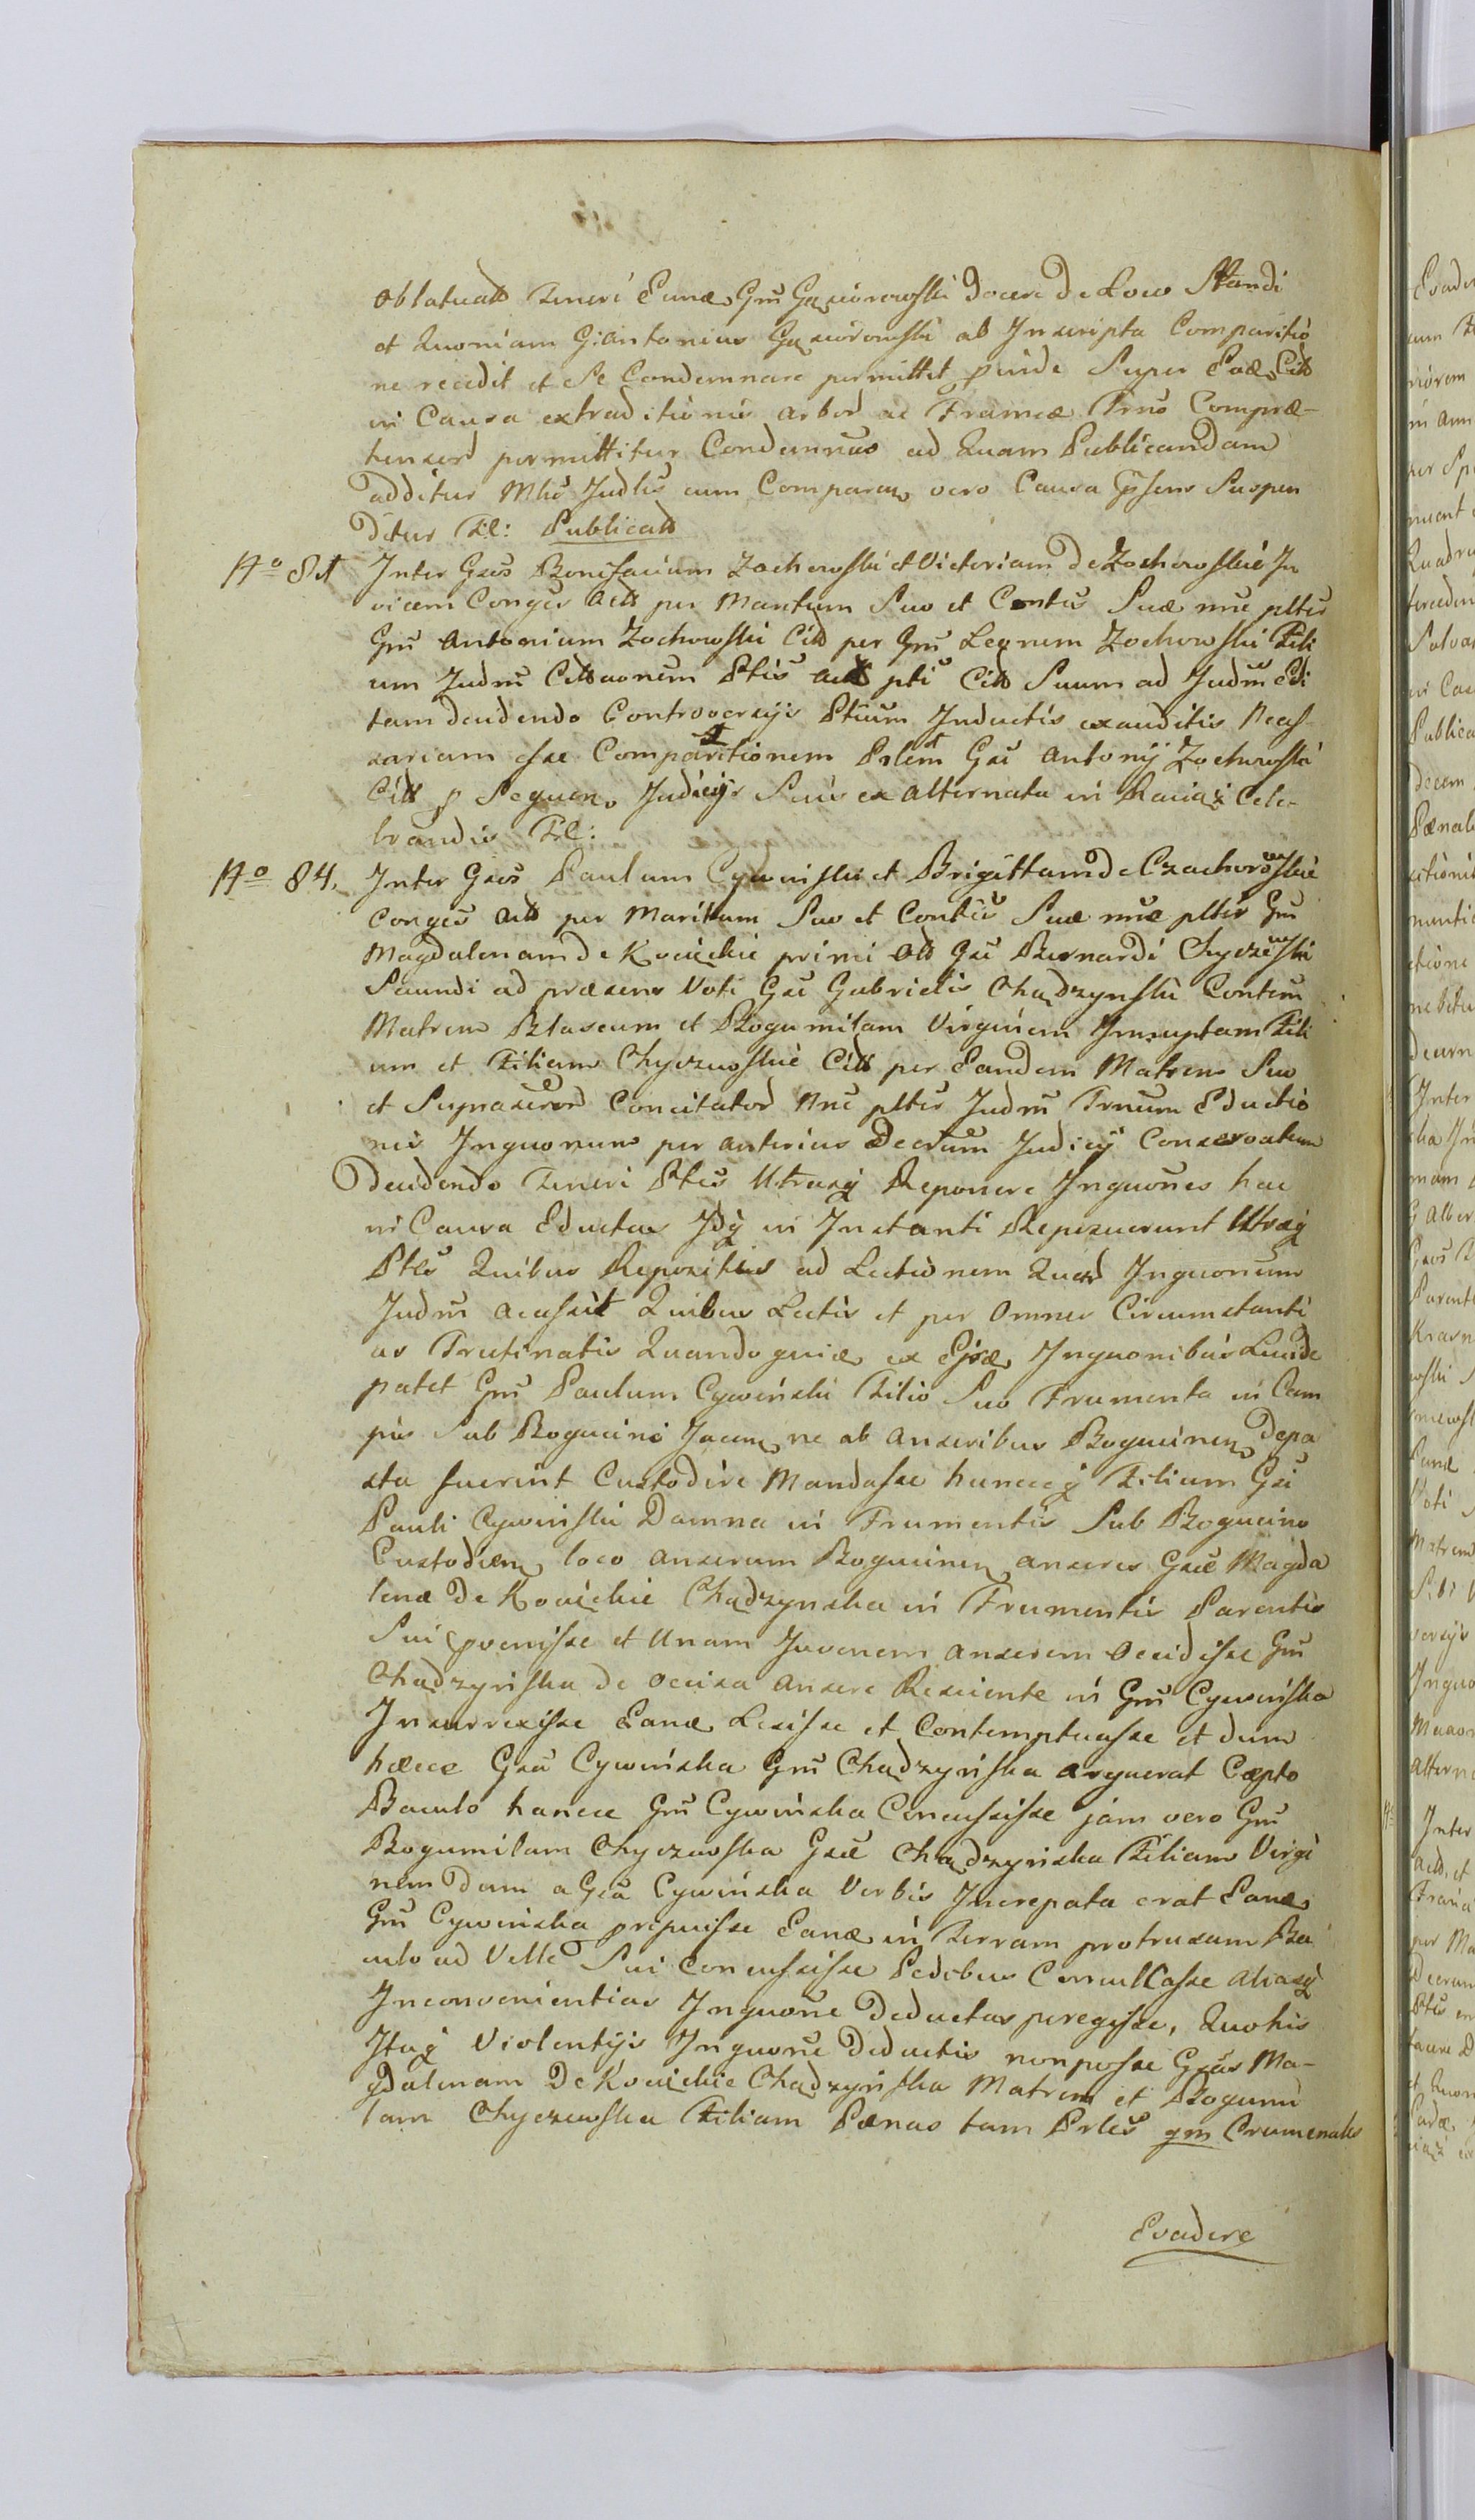 oblatuad Teneri Eund Gnu Gąsiorowski docere de Loco Standi
et Quoniam G: Antonius Gąsiorowski ab Inscripta Comparitio
ne recedit et Se Condemnare permittit proinde Super Eod Citt
in Causa extraditionis arbor ac Frameæ Trno Compræ-
hensor permittitur Condemnus ad Quam Publicandam
additur Mlis Judlis cum Comparen vero Causa Spens
ditur Fl: Publicatt
No 81 Inter Gsos Bonifacium Zochowski et Victoriam De Zochowskie In
vicem Conges Actt per Maritum Suo et Contis Suæ nne pltis
Gnu Antonium Zochowski Citt per Gnu Leonem Zochowski Fili
um Judm Cittaonem Ptis Actt pti Citt Suum ad Judm Edi
tam decidendo Controversijs Ptium Inductis exauditis Necess
sariam esse Comparitionem Prlem Gsi Antonij Zochowski
Citt p Sequen Judicijs Suis ex Alternata in Raciąż Cele-
brandis Fl:
No 84. Inter Gsos Paulum Cywinski et Brigittam de Czachorowskie
Conges Actt per Maritum Suo et Contis Suæ nne pltis Gnu
Magdalenam de Kosickie primi Gsi Bernardi Chyczewski
Secundi ad præsens Voti Gsi Gabrielis Chądzynski Contem
Matrem Blaseum et Bogumilam Virginem Innuptam Fili
um et Filiam Chyczewskie Citt per Eandem Matrem Suo
et Supnascror Concitator Nne pltis Judm Trnum Eductio
nis Inquonum per anterius Decrum Judicij Conservatum
Decidendo Teneri Ptes Utrasq Reponere Inquones hac
in Causa Eductas Idq in Instanti Reposuerunt Utræq
Ptes Quibus Repositis ad Lectionem Quar Inquonum
Judm accessit Quibus Lectis et per Omnes Circumstanti
as Trutinatis Quandoquid ex Ejsd Inquonibus Lucide
patet Gnu Paulum Cywinski Filio Suo Frumenta in Cam
pis Sub Bogucino Jacen ne ab Anseribus Bogucinen Depa
sta fuerint Custodire Mandasse huncq Filium Gsi
Pauli Cywinski Damna in Frumentis Sub Bogucino
Custodien loco anserum Bogucinen anseres Gsæ Magda
lenæ De Kosickie Chądzynska in Frumentis Parentis
Sui pvenisse et Unam Juvenem anserem Occidisse Gnu
Chądzynska de occisa Ansere Resciente in Gnu Cywinska
Insurrexisse Eand Lesisse et Contemptuasse et dum
hæcce Gsa Cywinska Gnu Chądzynska arguerat Cæpto
Baculo hancce Gnu Cywinska Concussisse jam vero Gnu
Bogumilam Chyczewska Gsæ Chądzynska Filiam Virgi
nem Dum a Gsa Cywinska Verbis Increpata erat Eand
Gnu Cywinska prepuisse Eand in Terram protrusam Ba
culo ad Velle Sui Concussisse Pedibus Conculcasse aliasq
Inconvenientias Inquone Deductas peregisse, Quo his
Itaq Violentijs Inquone Deductis non posse Gsas Ma-
gdalenam De Kosickie Chądzynska Matrem et Bogumi
lam Chyczewska Filiam Pænas tam Prles qm Crumenales
Evadere